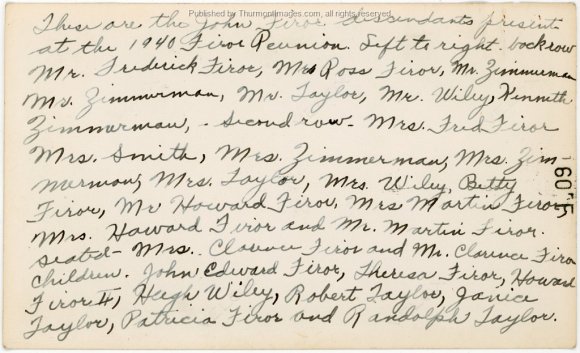 Published by ThurmontImages.com, all rights reserved.
These are the John Firor descendants present
at the 1940 Firor Reunion. Left to right. back row
Mr. Frederick Firor, Mrs Ross Firor, Mr. Zimmerman
Mr. Zimmerman, Mr. Taylor, Mr. Wiley, Kenneth
Zimmerman, - Second row - Mrs. Fred Firor
Mrs. Smith, Mrs. Zimmerman, Mrs. Zim-
merman, Mrs. Taylor, Mrs. Wiley, Betty
Firor, Mr Howard Firor, Mrs Martin Firor
Mrs. Howard Firor and Mr. Martin Firor.
seated - Mrs. Clarence Firor and Mr. Clarence Firor
Children. John Edward Firor, Theresa Firor, Howard
Firor II, Hugh Wiley, Robert Taylor, Janice
Taylor, Patricia Firor and Randolph Taylor.